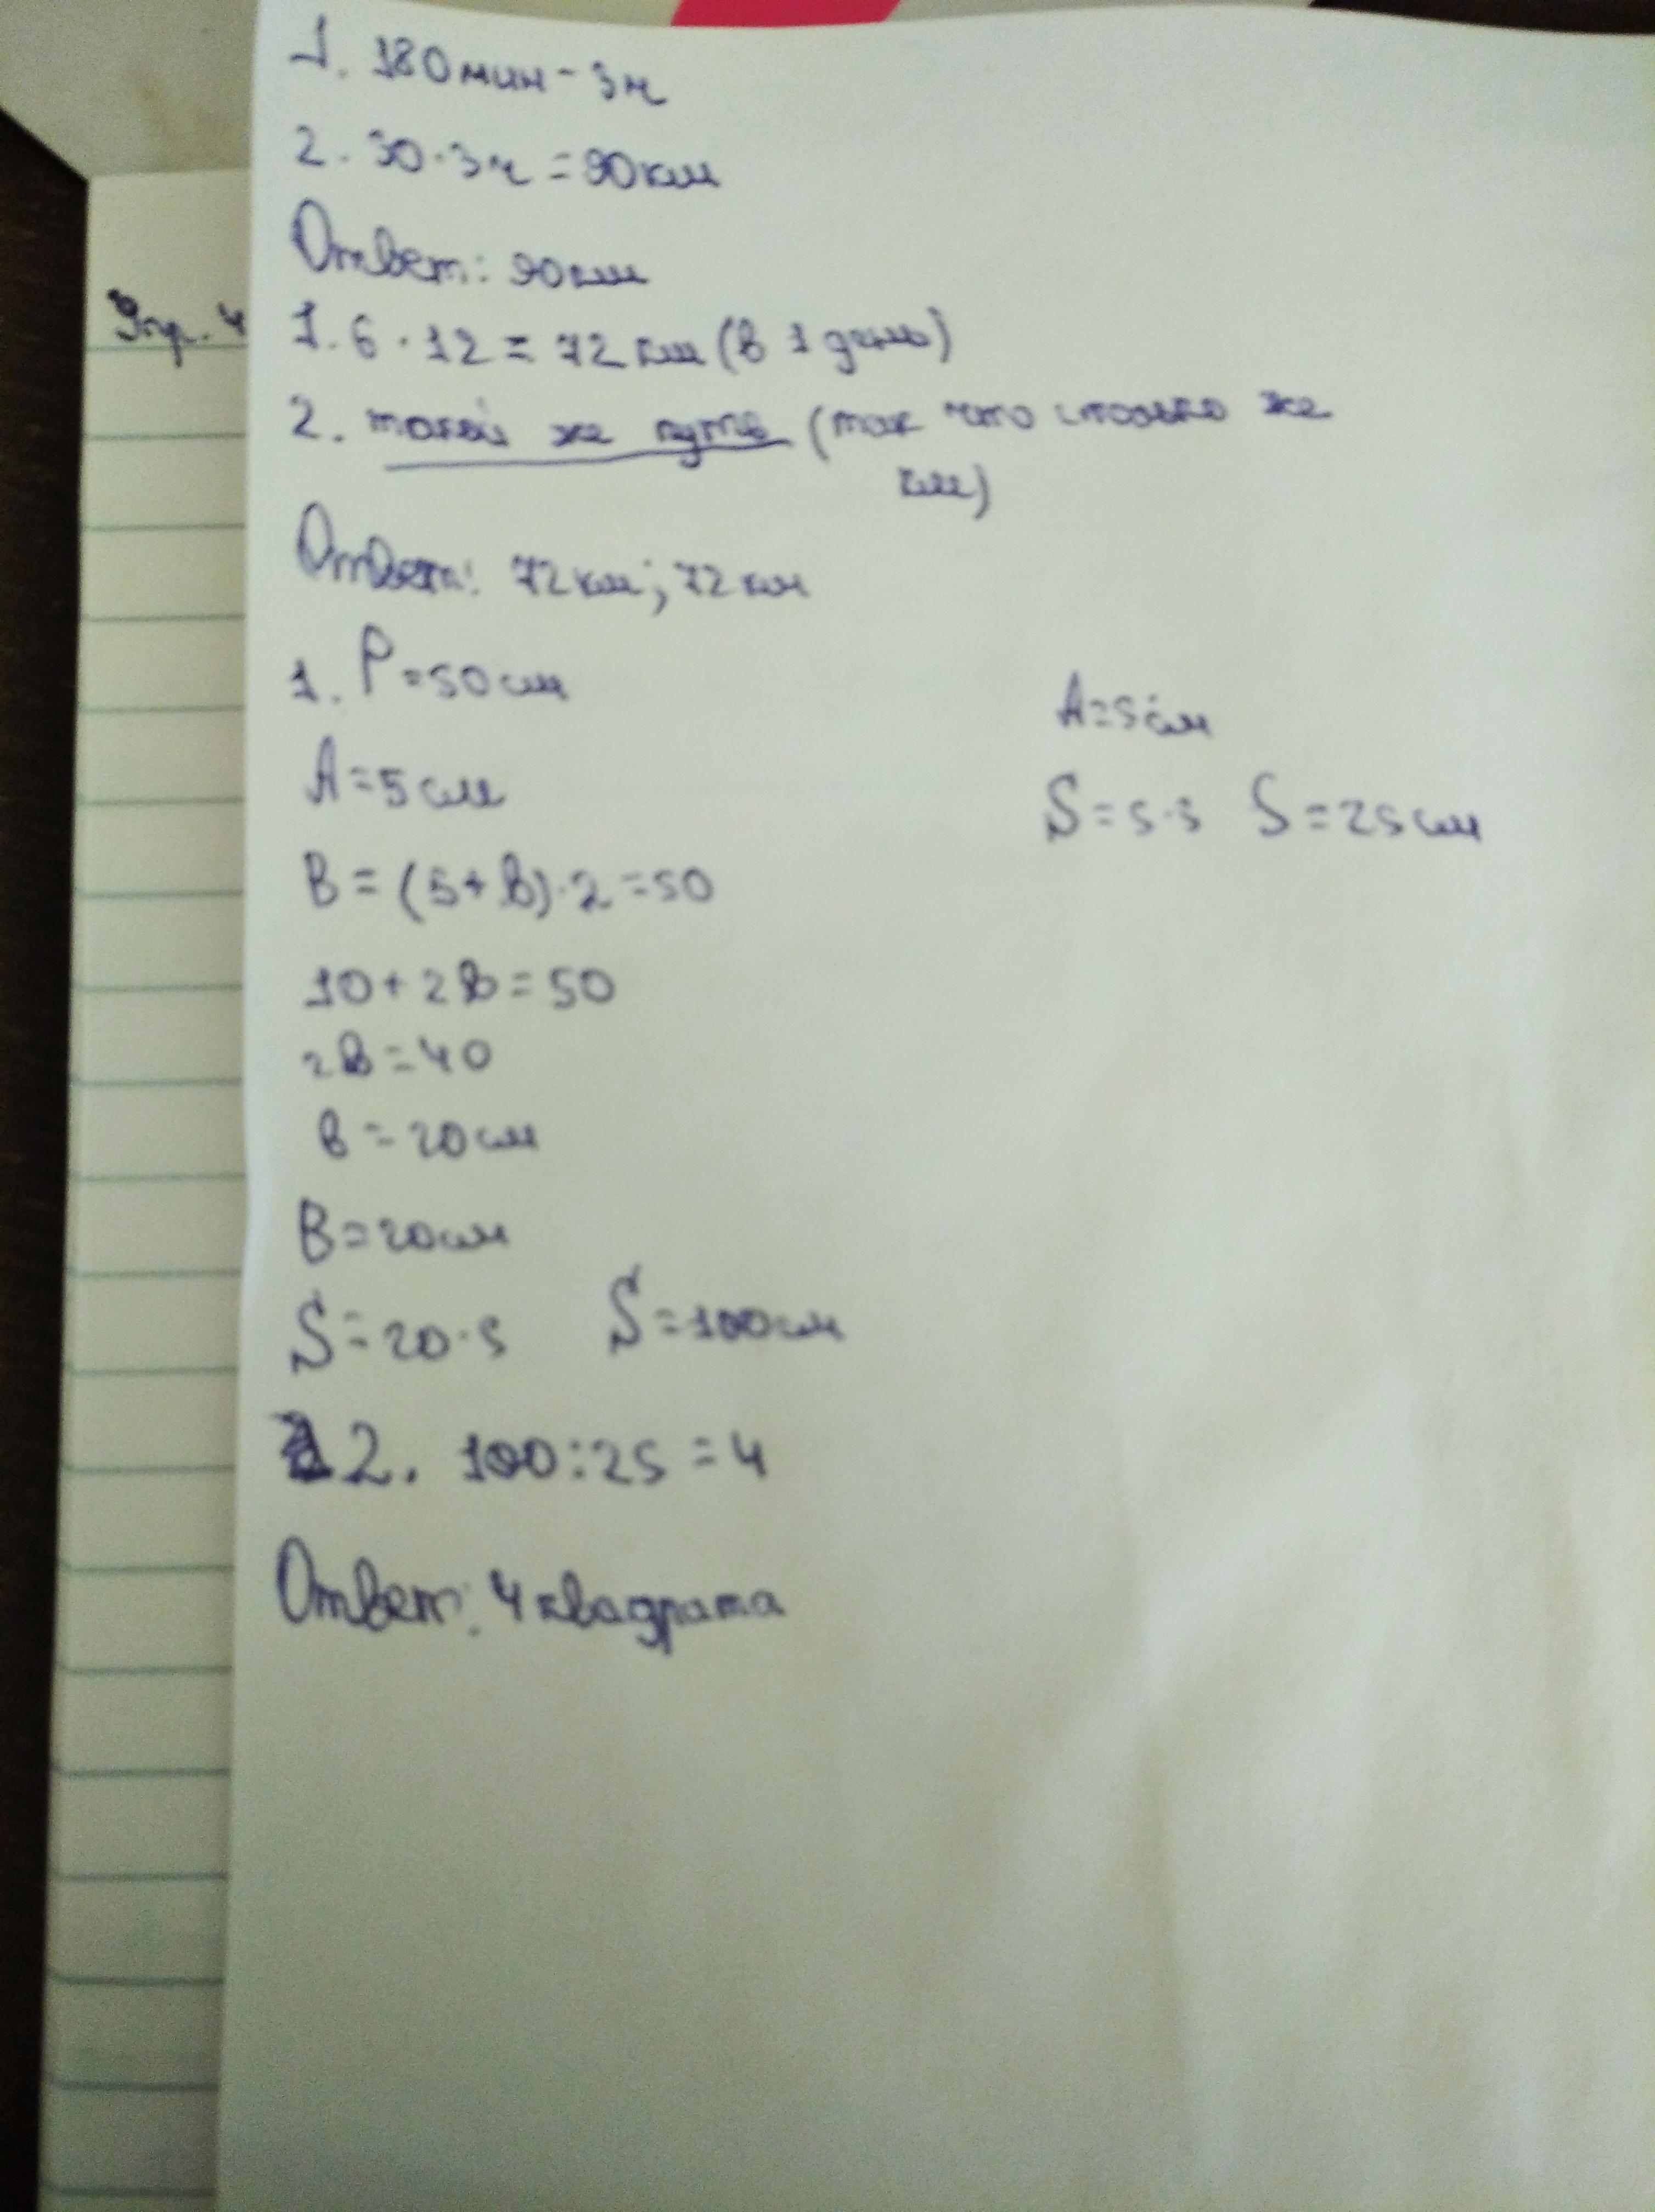 1. 180мин - 3ч
2. 30·3ч = 90км
Ответ: 90км
Упр. 4
1. 6 · 12 = 72 км (в 1 день)
2. такой же путь (так что столько же
км)
Ответ: 72 км; 72 км
1. P=50см
A=5см
A=5см
S=5·5 S=25см
B=(5+b)·2=50
10+2b=50
2b=40
b=20см
B=20см
S=20·5 S=100см
2. 100:25=4
Ответ: 4 квадрата